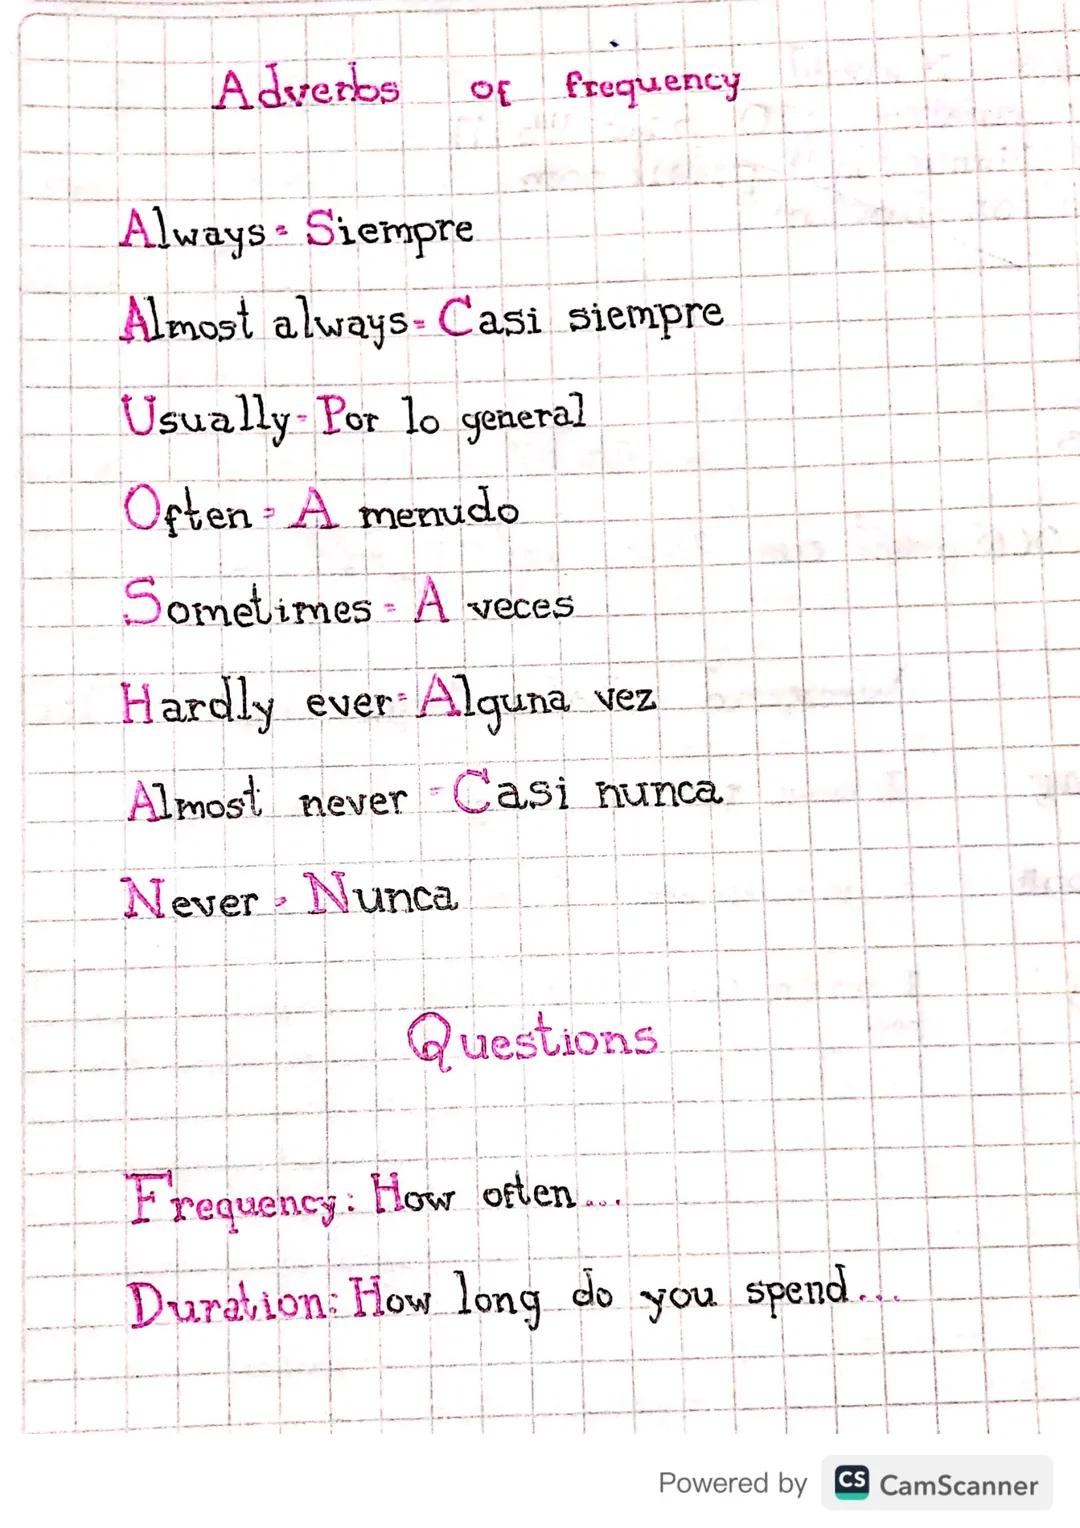 Adverbs of frequency
Always = Siempre
Almost always = Casi siempre
Usually - Por lo general
Often = A menudo
Sometimes = A veces
Hardly ever = Alguna vez
Almost never - Casi nunca
Never - Nunca
Questions
Frequency: How often....
Duration: How long do you spend...
Powered by CS CamScanner